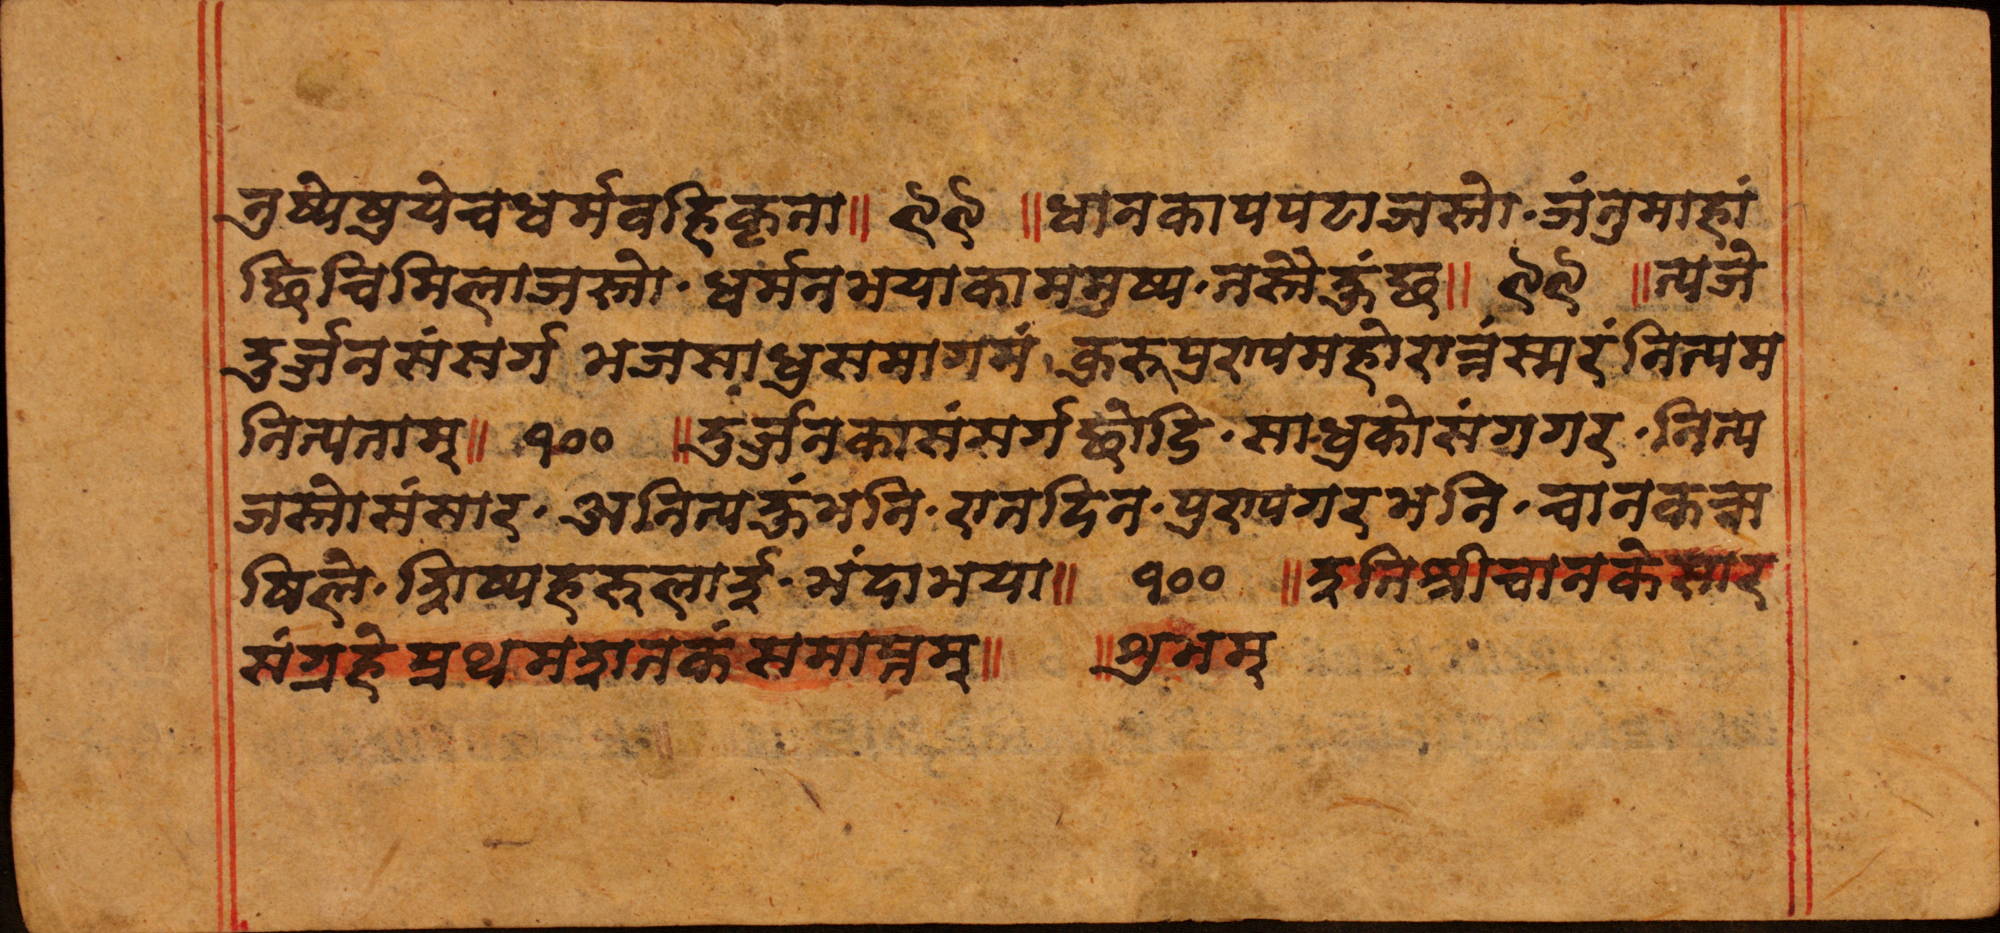 नुष्येषुयेचधर्मवहिकृता॥ ९९ ॥धानकापपटाजस्तो·जंतुमाहां
छिचिमिलाजस्तो·धर्मनभयाकामनुष्य·तस्तैहुंछ॥ ९९ ॥त्यजे
दुर्ज्जनसंसर्ग भजसाधुसमागमं कुरुपुण्यमहोरात्रंस्मरंनित्यम
नित्यताम्॥ १०० ॥दुर्ज्जनकासंसर्गछोडि·साधुकोसंगगर·नित्य
जस्तोसंसार·अनित्यहुंभनि·रातदिन·पुण्यगरभनि·चानकऋ
षिले·शिष्यहरुलाई·भंदाभया॥ १०० ॥इतिश्रीचानकेसार
संग्रहेप्रथमशतकंसमाप्तम्॥ ॥शुभम्